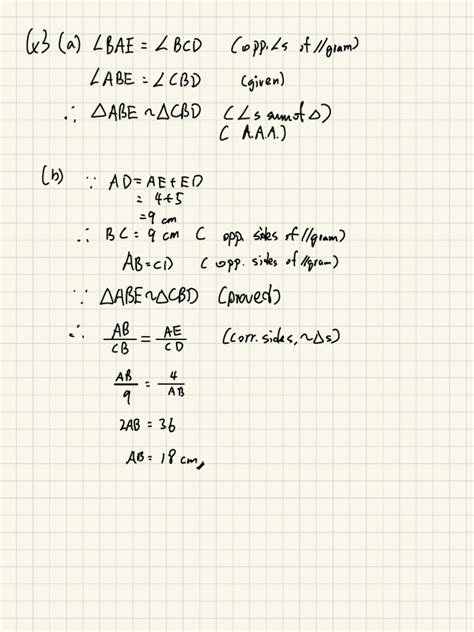 (x3 (a) ∠BAE = ∠BCD (opp.∠s of //gram)
∠ABE = ∠CBD (given)
∴ △ABE ~ △CBD (∠s sum of △)
( A.A.A.)
(b) ∵ AD = AE + ED
= 4+5
= 9 cm
∴ BC = 9 cm ( opp. sides of //gram)
AB = CD ( opp. sides of //gram)
∵ △ABE ~ △CBD (proved)
∴ AB/CB = AE/CD (corr. sides, ~△s)
AB/9 = 4/AB
2AB = 36
AB = 18 cm